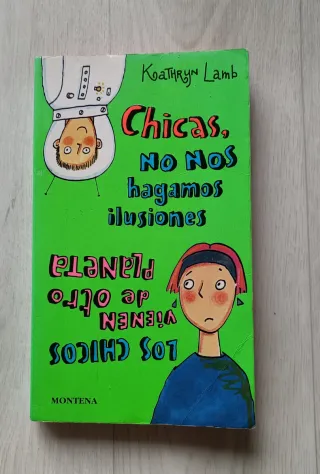 Kathryn Lamb
Chicas,
no nos
hagamos
ilusiones
Los chicos
vienen
de otro
planeta
MONTENA